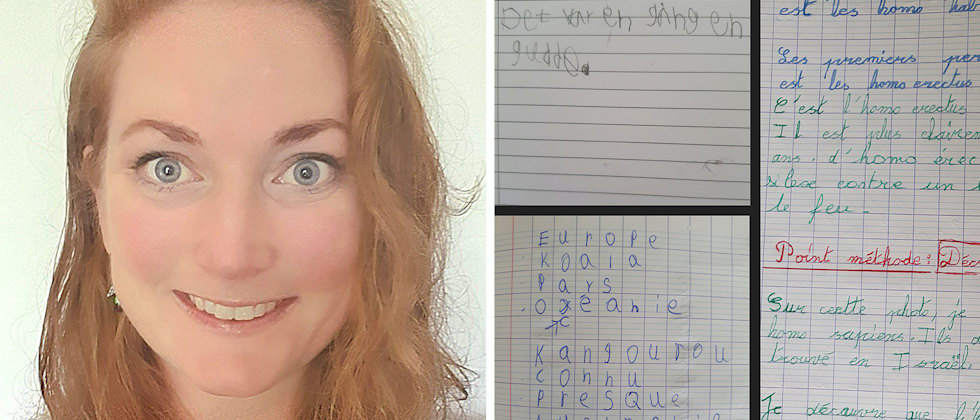 Det var en gång en
gubbe.
Europe
Koala
Pars
Oxeanie
c
Kangourou
Connu
Presque
est les homo hab
Les premiers per
est les homo erectus
C'est l'homo erectus
Il est plus
ans. d'homo érec
silexe contre un
le feu.
Point méthode: Déc
Sur cette photo, je
homo sapiens. Ils
trouvé en Israël
Je découvre que l'h